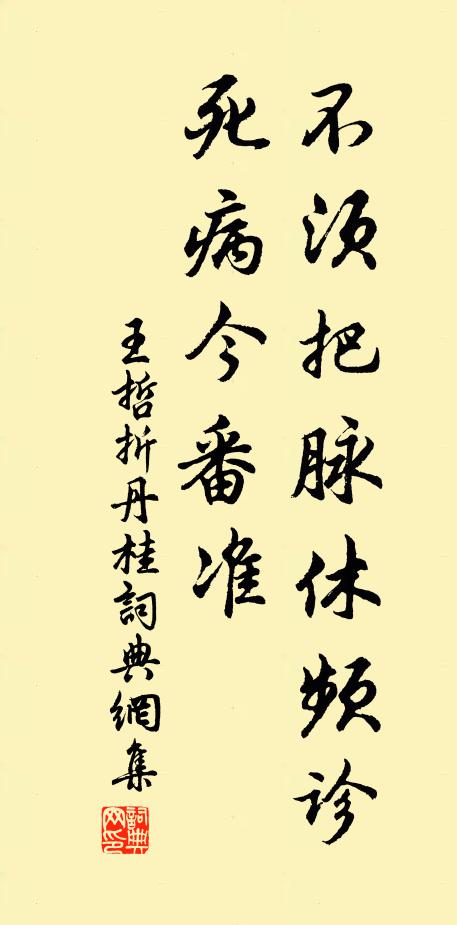 不須把脉休頻診
死病今番准
王哲折丹桂詞典網集
詞典网印